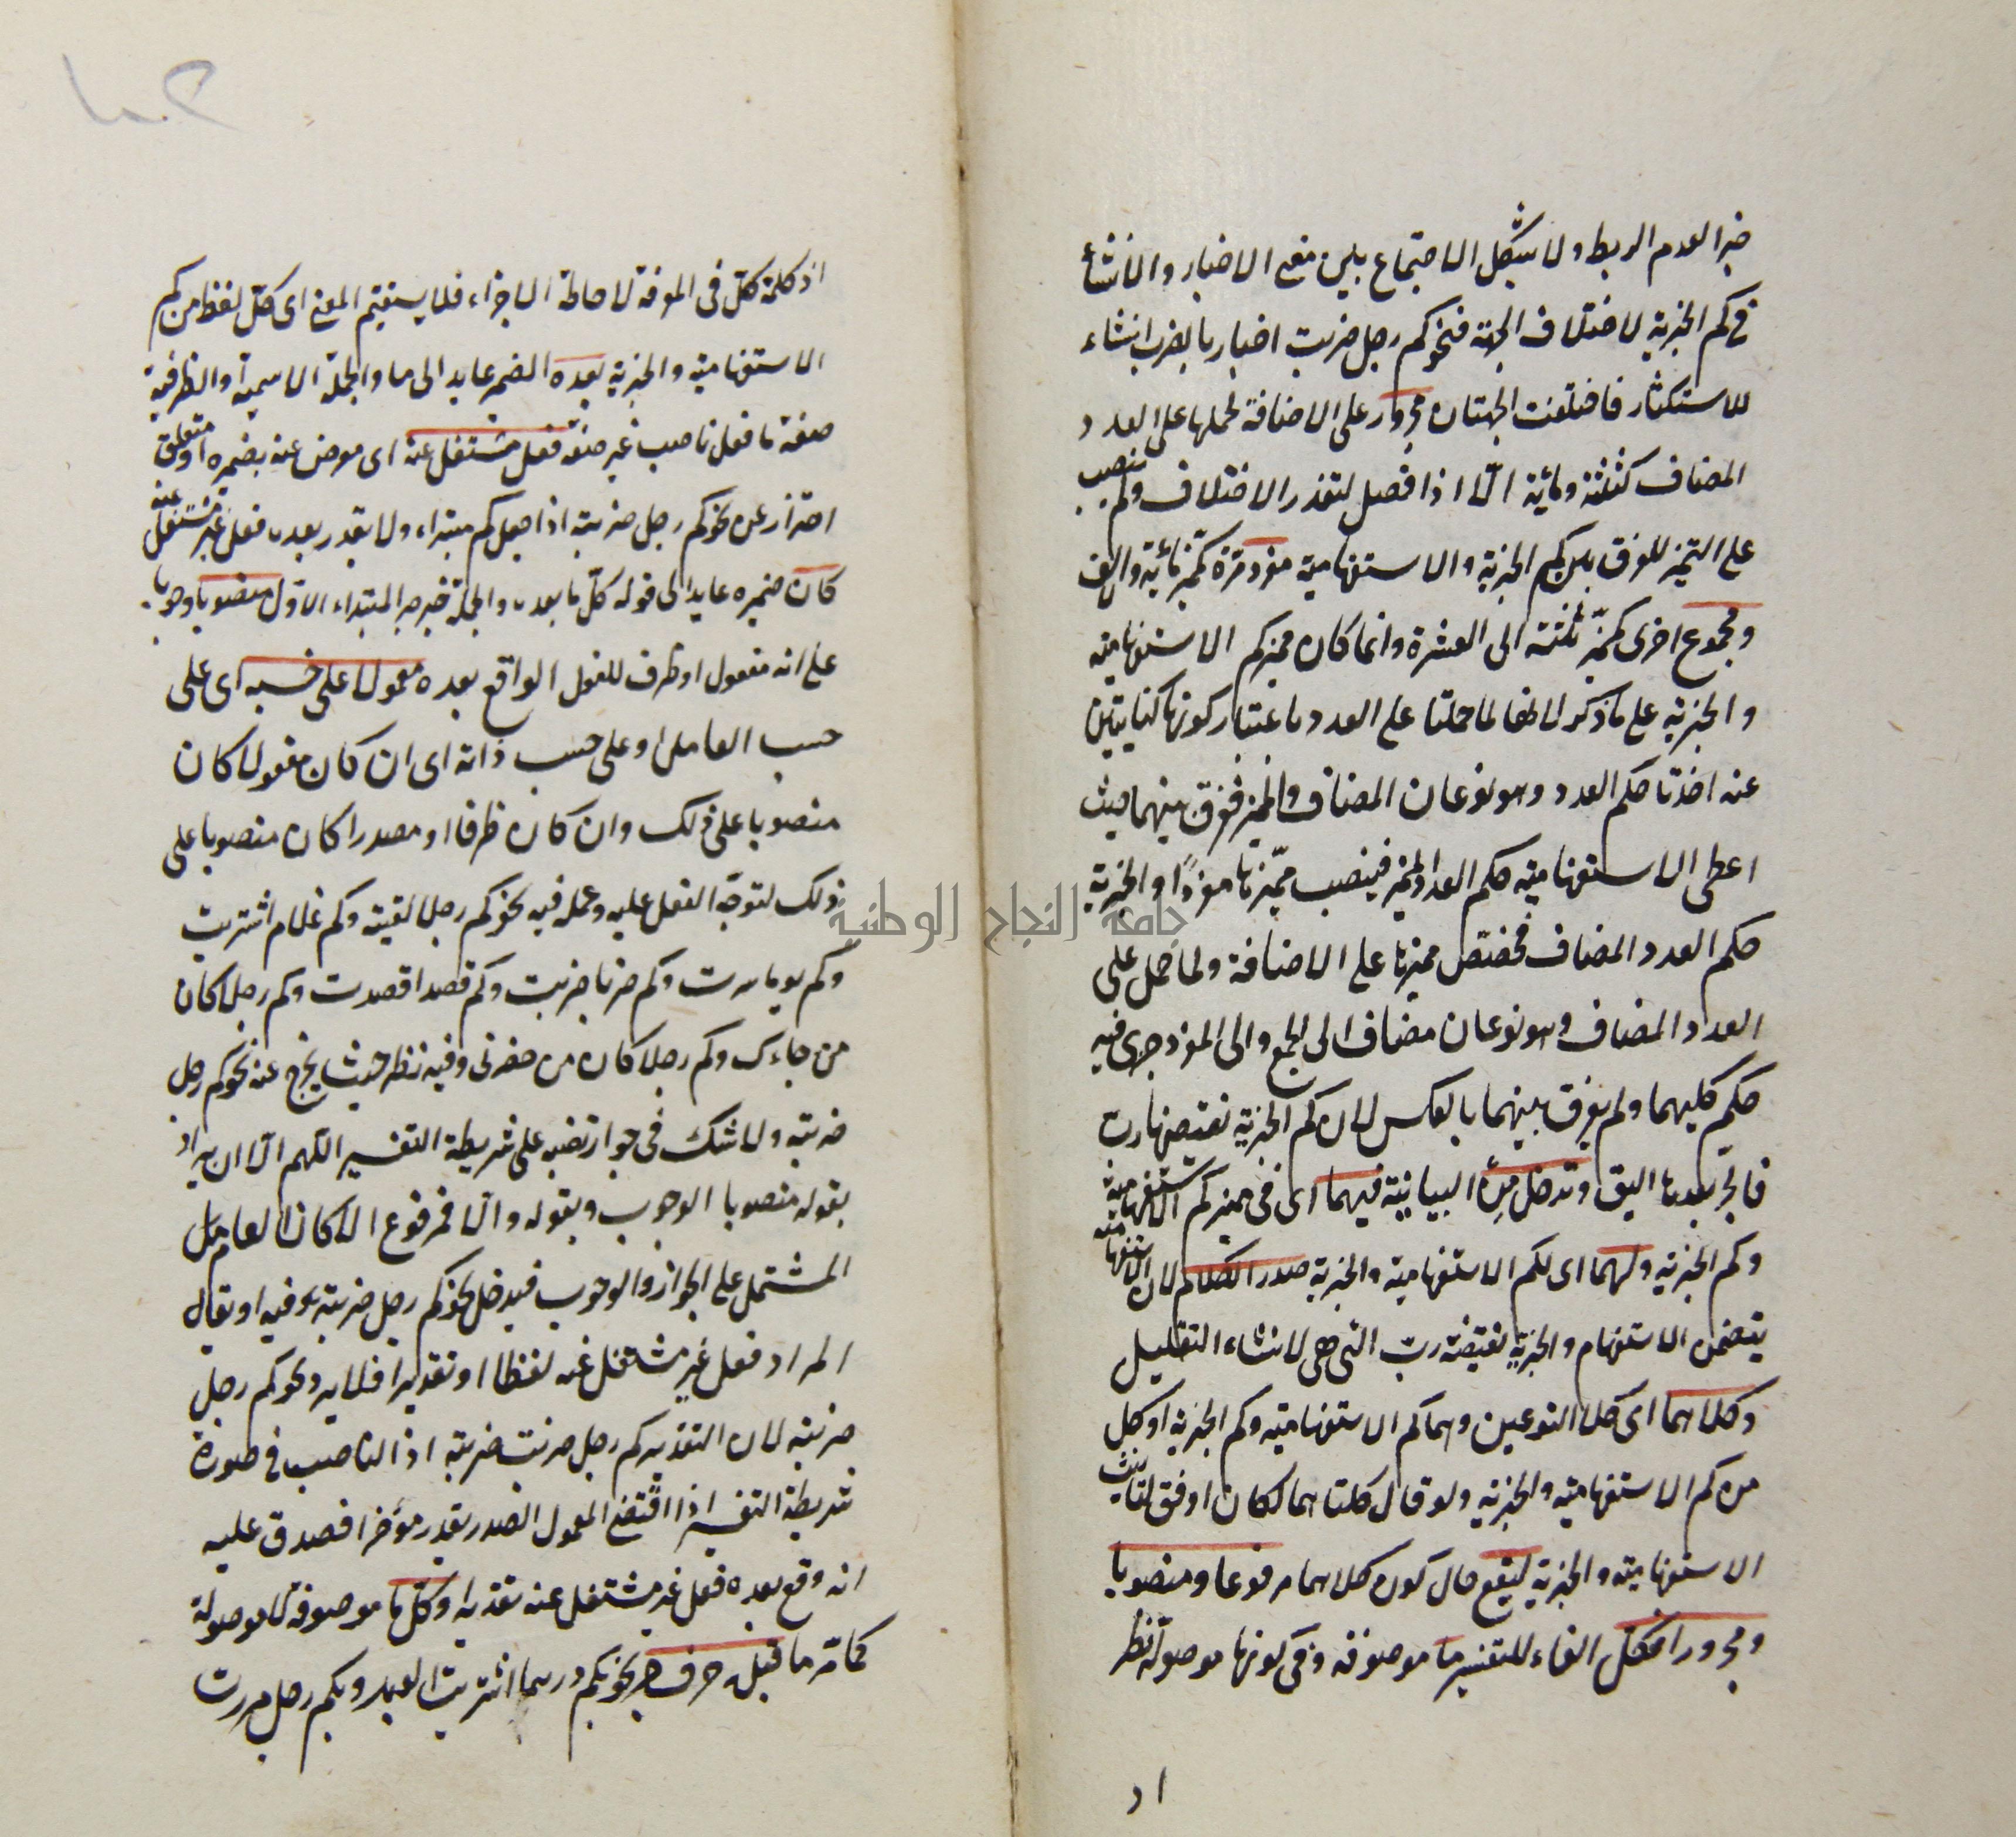 خبرا لعدم الربط ولا يشكل الاجتماع بين معنى الاخبار والانشاء
في كم الخبرية لاختلاف الجهة فنحو كم رجل ضربت اخبار بالضرب انشاء
للاستكثار فاختلفت الجهتان مجرور على الاضافة لحملها على العدد
المضاف كثلثة ومائة الا اذا فصل لتعذر الاختلاف ولم ينصب
على التميز للفرق بين كم الخبرية والاستفهامية مفرد مرة كميز مائة والف
ومجموع اخرى كميّز ثلثة الى العشرة وانما كان مميز كم الاستفهامية
والخبرية على ما ذكر لانها لما حملتا على العدد باعتبار كونها كنايتين
عنه اخذتا حكم العدد وهو نوعان المضاف والمميز ففرق بينهما حيث
اعطى الاستفهامية حكم العدد المميز فينصب مميّزها مفردًا والخبرية
حكم العدد المضاف فخفض مميزها على الاضافة ولما حمل على
العدد المضاف وهو نوعان مضاف الى الجمع والى المفرد جرى فيه
حكم كليهما ولم يفرق بينهما بالعكس لان كم الخبرية نقيضها رب
فالجر بعدها اليق وتدخل من البيانية فيهما اى فى مميز كم الاستفهامية
وكم الخبرية ولهما اى لكم الاستفهامية والخبرية صدر الكلام لان الاستفهامية
يتضمن الاستفهام والخبرية نقيضة ربّ التى هى لانشاء التقليل
وكلاهما اى كل النوعين وهما كم الاستفهامية وكم الخبرية او كل
من كم الاستفهامية والخبرية ولو قال كلتاهما لكان اوفق لتانيث
الاستفهامية والخبرية ليقع حال كون كلاهما مرفوعا ومنصوبا
ومجرورا فكل الفاء للتفسير ما موصوفة وفى كونها موصولة نظر
اذ
١٠٢
اذ كلمة كل فى المعرفة لاحاطة الاجزاء فلا يستقيم المعنى اى كل لفظ من كم
الاستفهامية والخبرية بعده الضمير عايد الى ما والجملة الاسمية والظرفية
صفة ما فعل ناصب غير صفة فعل مشتغل عنه اى معرض عنه بضميره او متعلق
احتراز عن نحو كم رجل ضربته اذا جعل كم مبتداء ولا يقدر بعده فعل غير مشتغل عنه
كان ضميره عايد الى قوله كل ما بعده والجملة خبر خبر المبتداء الاول منصوبا وجوبا
على انه مفعول او ظرف للفعل الواقع بعده معمولا على حسبه اى على
حسب العامل او على حسب ذاته اى ان كان مفعولا كان
منصوبا على ذلك وان كان ظرفا او مصدرا كان منصوبا على
ذلك لتوجّه الفعل عليه وعمله فيه نحو كم رجلا لقيته وكم غلام اشتريت
وكم يوما سرت وكم ضربا ضربت وكم قصدا قصدت وكم رجلا كان
من جاءك وكم رجلا كان من حضرنى وفيه نظر حيث يخرج عنه نحو كم رجل
ضربته ولا شك فى جواز نصبه على شريطة التفسير اللهم الا ان يراد
بقوله منصوبا الوجوب وبقوله والا فمرفوع الا كان العامل
المشتمل على الجواز والوجوب فيدخل نحو كم رجل ضربته وفيه او يقال
المراد فعل غير مشتغل عنه لفظا او تقديرا فلا يرد نحو كم رجل
ضربته لان التقدير كم رجل ضربت ضربته اذ الناصب فى صورة
شريطة التفسير اذا اقتضى المعمول الصدر يقدر مؤخرا فصدق عليه
انه وقع بعده فعل غير مشتغل عنه تقديرا وكل ما موصوفة لا موصولة
كما مر ما قبله حرف جر نحو بكم درهما اشتريت العبد وبكم رجل مررت